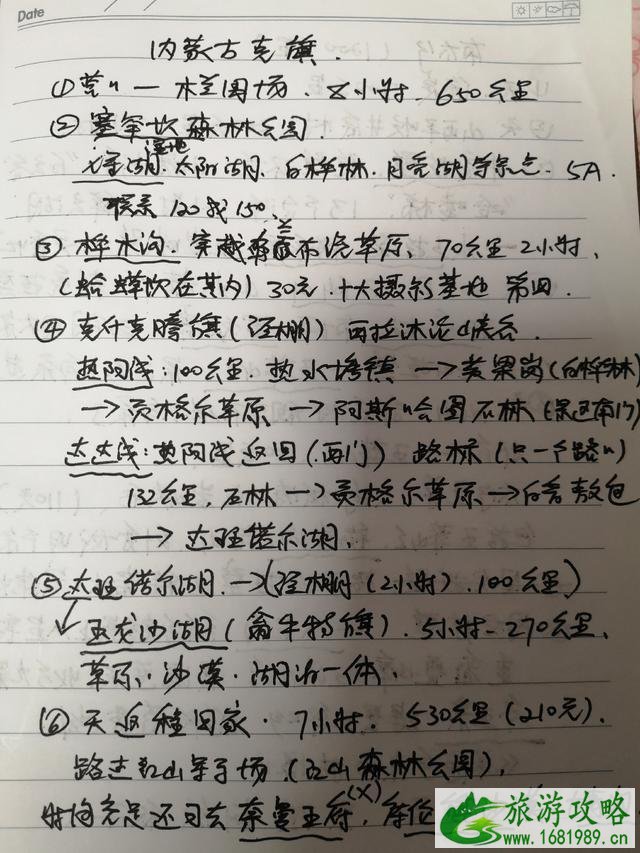 Date
内蒙古克旗.
①营口 — 木兰围场. 8小时. 650公里
②塞罕坝森林公园
湿地
七星湖. 太阳湖. 白桦林. 月亮湖等景点. 5A.
联票 120或150.
③桦木沟. 穿越乌兰布统草原, 70公里 2小时,
(蛤蟆坝在其内) 30元. 十大摄影基地 第四.
④克什克腾旗(经棚) 西拉沐沦大峡谷.
热阿线: 100公里. 热水塘镇 → 黄果岗(白桦林)
→ 贡格尔草原 → 阿斯哈图石林 (景区南门)
达达线: 热阿线返回(西门) 路标 (只一个路口)
132公里, 石林 → 贡格尔草原 → 白音敖包
→ 达里诺尔湖.
⑤达里诺尔湖 → (经棚 (2小时). 100公里)
玉龙沙湖 (翁牛特旗). 5小时 - 270公里.
草原. 沙漠. 湖泊一体.
⑥天返程回家. 7小时. 530公里 (210元).
路过红山军马场 (红山森林公园),
时间充足还可去奈曼王府, (X)
旅游攻略
www.1681989.cn